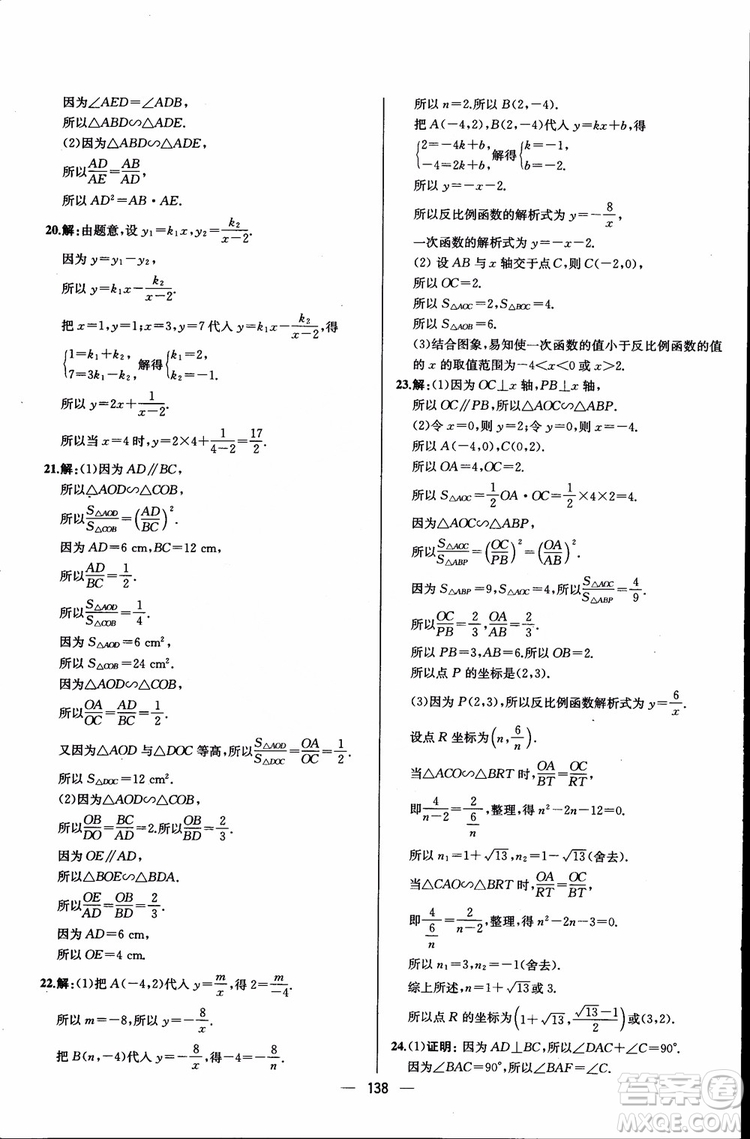 因为∠AED=∠ADB,
所以△ABD∽△ADE.
(2)因为△ABD∽△ADE,
所以AD/AE=AB/AD,
所以 AD²=AB·AE.
20.解:由题意,设 y₁=k₁x,y₂=k₂/(x-2).
因为 y=y₁-y₂,
所以 y=k₁x-k₂/(x-2).
把 x=1,y=1;x=3,y=7代入 y=k₁x-k₂/(x-2),得
{1=k₁+k₂ 7=3k₁-k₂,解得{k₁=2 k₂=-1.
所以 y=2x+1/(x-2).
所以当 x=4 时,y=2×4+1/(4-2)=17/2.
21.解:(1)因为 AD∥BC,
所以△AOD∽△COB,
所以S△AOD/S△COB=(AD/BC)².
因为 AD=6 cm,BC=12 cm,
所以AD/BC=1/2.
所以S△AOD/S△COB=1/4.
因为 S△AOD=6 cm²,
所以 S△COB=24 cm².
因为△AOD∽△COB,
所以OA/OC=AD/BC=1/2.
又因为△AOD与△DOC等高,所以S△AOD/S△DOC=OA/OC=1/2.
所以 S△DOC=12 cm².
(2)因为△AOD∽△COB,
所以OB/DO=BC/AD=2.所以OB/BD=2/3.
因为 OE∥AD,
所以△BOE∽△BDA.
所以OE/AD=OB/BD=2/3.
因为 AD=6 cm,
所以 OE=4 cm.
22.解:(1)把 A(-4,2)代入 y=m/x,得 2=m/-4.
所以 m=-8,所以 y=-8/x.
把 B(n,-4)代入 y=-8/x,得-4=-8/n.
所以 n=2.所以 B(2,-4).
把 A(-4,2),B(2,-4)代入 y=kx+b,得
{2=-4k+b -4=2k+b,解得{k=-1, b=-2.
所以 y=-x-2.
所以反比例函数的解析式为 y=-8/x,
一次函数的解析式为 y=-x-2.
(2) 设 AB 与 x 轴交于点 C,则 C(-2,0),
所以 OC=2.
所以 S△AOC=2,S△BOC=4.
所以 S△AOB=6.
(3)结合图象,易知使一次函数的值小于反比例函数的值
的 x 的取值范围为-4<x<0 或 x>2.
23.解:(1)因为 OC⊥x 轴,PB⊥x 轴,
所以 OC∥PB,所以△AOC∽△ABP.
(2)令 x=0,则 y=2;令 y=0,则 x=-4.
所以 A(-4,0),C(0,2).
所以 OA=4,OC=2.
所以 S△AOC=1/2OA·OC=1/2×4×2=4.
因为△AOC∽△ABP,
所以S△AOC/S△ABP=(OC/PB)²=(OA/AB)².
因为 S△ABP=9,S△AOC=4,所以S△AOC/S△ABP=4/9.
所以OC/PB=2/3,OA/AB=2/3.
所以 PB=3,AB=6.所以 OB=2.
所以点 P 的坐标是(2,3).
(3)因为 P(2,3),所以反比例函数解析式为 y=6/x.
设点 R 坐标为(n,6/n).
当△ACO∽△BRT 时,OA/BT=OC/RT.
即4/(n-2)=2/(6/n),整理,得 n²-2n-12=0.
所以 n₁=1+√13,n₂=1-√13(舍去).
当△CAO∽△BRT 时,OA/RT=OC/BT.
即4/(6/n)=2/(n-2),整理,得 n²-2n-3=0.
所以 n₁=3,n₂=-1(舍去).
综上所述,n=1+√13或3.
所以点 R 的坐标为(1+√13,(√13-1)/2)或(3,2).
24.(1)证明:因为 AD⊥BC,所以∠DAC+∠C=90°.
因为∠BAC=90°,所以∠BAF=∠C.
— 138 —
答案圈